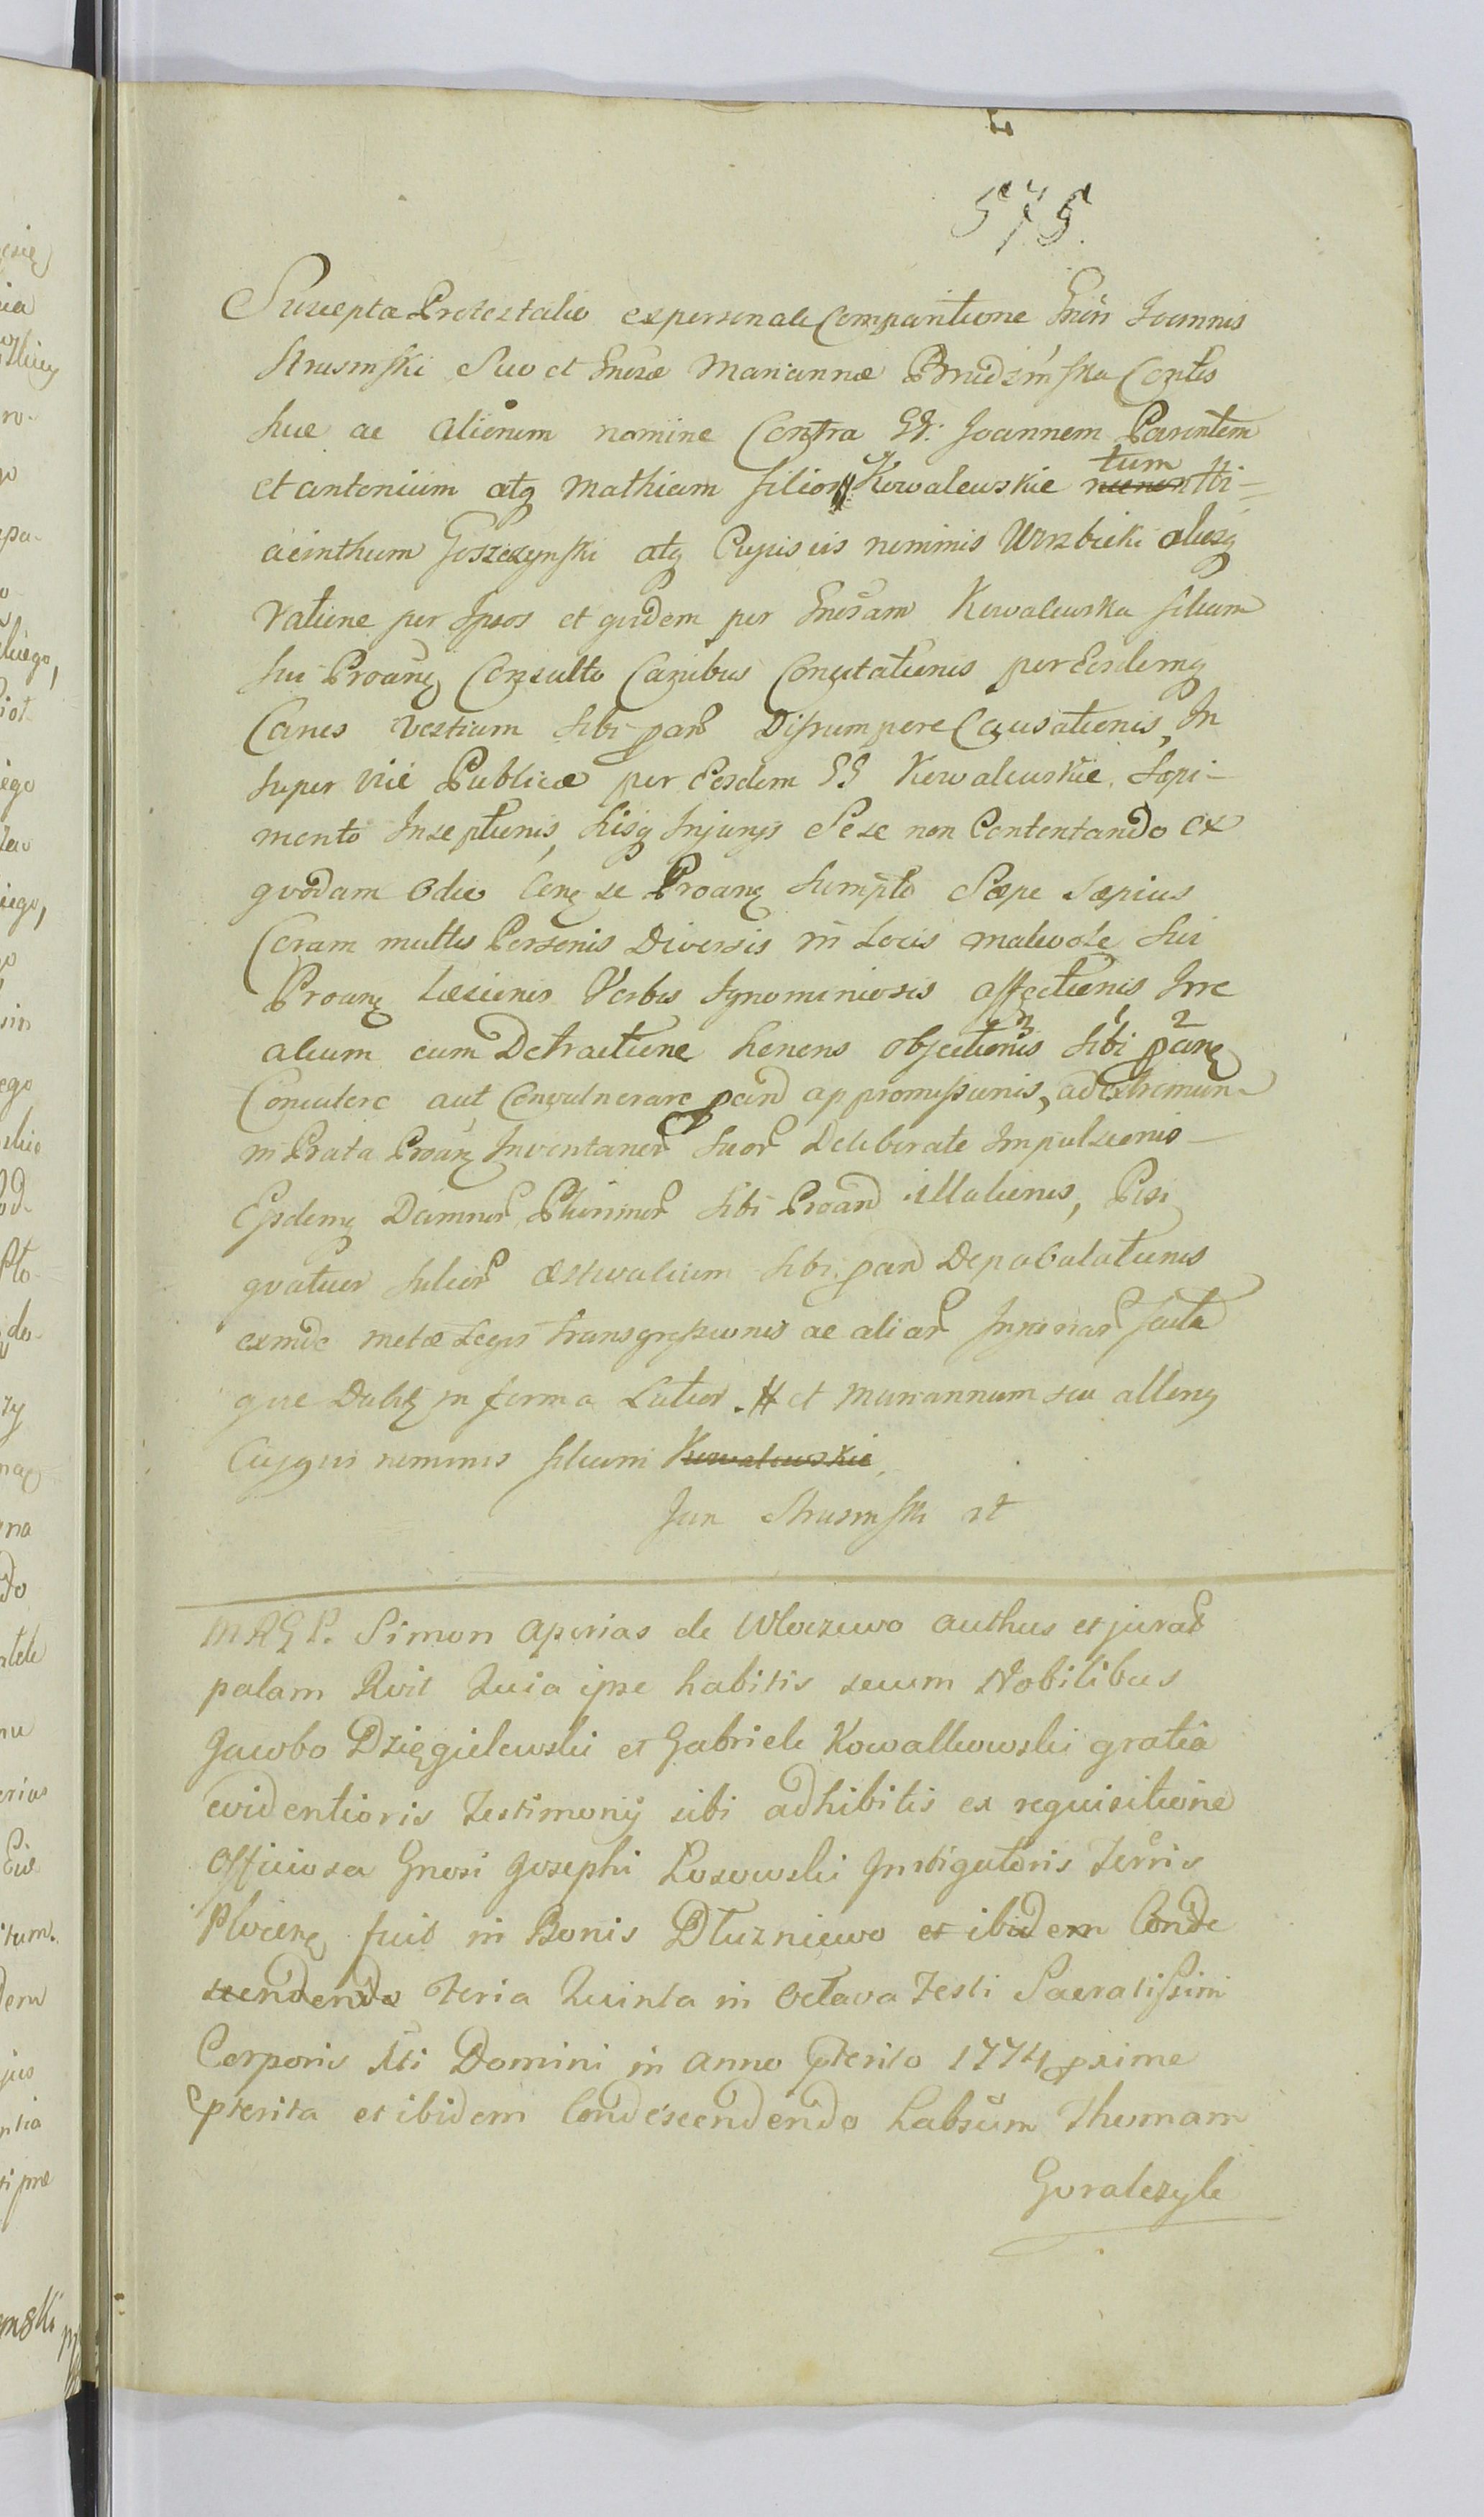 575.
Suscepta Protestatio ex personali Comparitione Gnosi Joannis
Strusinski Suo et Gnosæ Mariannæ Brudzinska Contis
suæ ac Aliorum nomine Contra GG: Joannem Parentem
et Antonium atq Mathiam filios # Kowalewskie tum Hi=
acinthum Goszczynski atq Cujusvis nominis Wierzbicki aliasq
ratione per Ipsos et quidem per Gnosam Kowalewska filiam
sui Proanę Consulto Canibus Concitationis per Eosdemq
Canes Vestium sibi pan Disrumpere Causationis, In
super viæ Publicæ per Eosdem GG Kowalewskie Sæpi-
mento Inseptionis, hisq Injurys Sese non Contentando ex
quodam Odio Cerę se Proanę Sumpto Sæpe Sæpius
Coram multis Personis Diversis in Locis malevole sui
Proanę Læsionis Verbis Ignominiosis affectionis Irre
alium cum Detractione honens objectionis 3 sibi 1 panę 2
Conculere aut Convulnerare pand appromissionis, ad extremum
in Prata Proanę Inventaner Suor Deliberate Impulsionis
Eosdemq Damnor Plurimor sibi Proand illationis, Pisi
quatuor Sulcor Æstivalium sibi pand Depabulationis
exinde metæ Legis transgressionis ac aliar Injuriar facta
que Dabit in forma Latior. # et Mariannam seu alterię
Cujqvis nominis filiam Kowalewskie
Jan Strusinski rt
MRGP. Simon Aporias de Wloczewo authus et jurat
palam Rvit Quia ipse habitis secum Nobilibus
Jacobo Dzięgielewski et Gabriele Kowallkowski gratia
evidentioris Testimony sibi adhibitis ex requisitione
Officiosa Gnosi Josephi Losowski Instigatoris Terris
Plocenę fuit in Bonis Dłuzniewo et ibidem Conde
scendendo Feria Quinta in Octava Festi Sacratissimi
Corporis Xti Domini in Anno pterito 1774 pxime
pterita et ibidem Condescendendo Labsum Thomam
Goralczyk